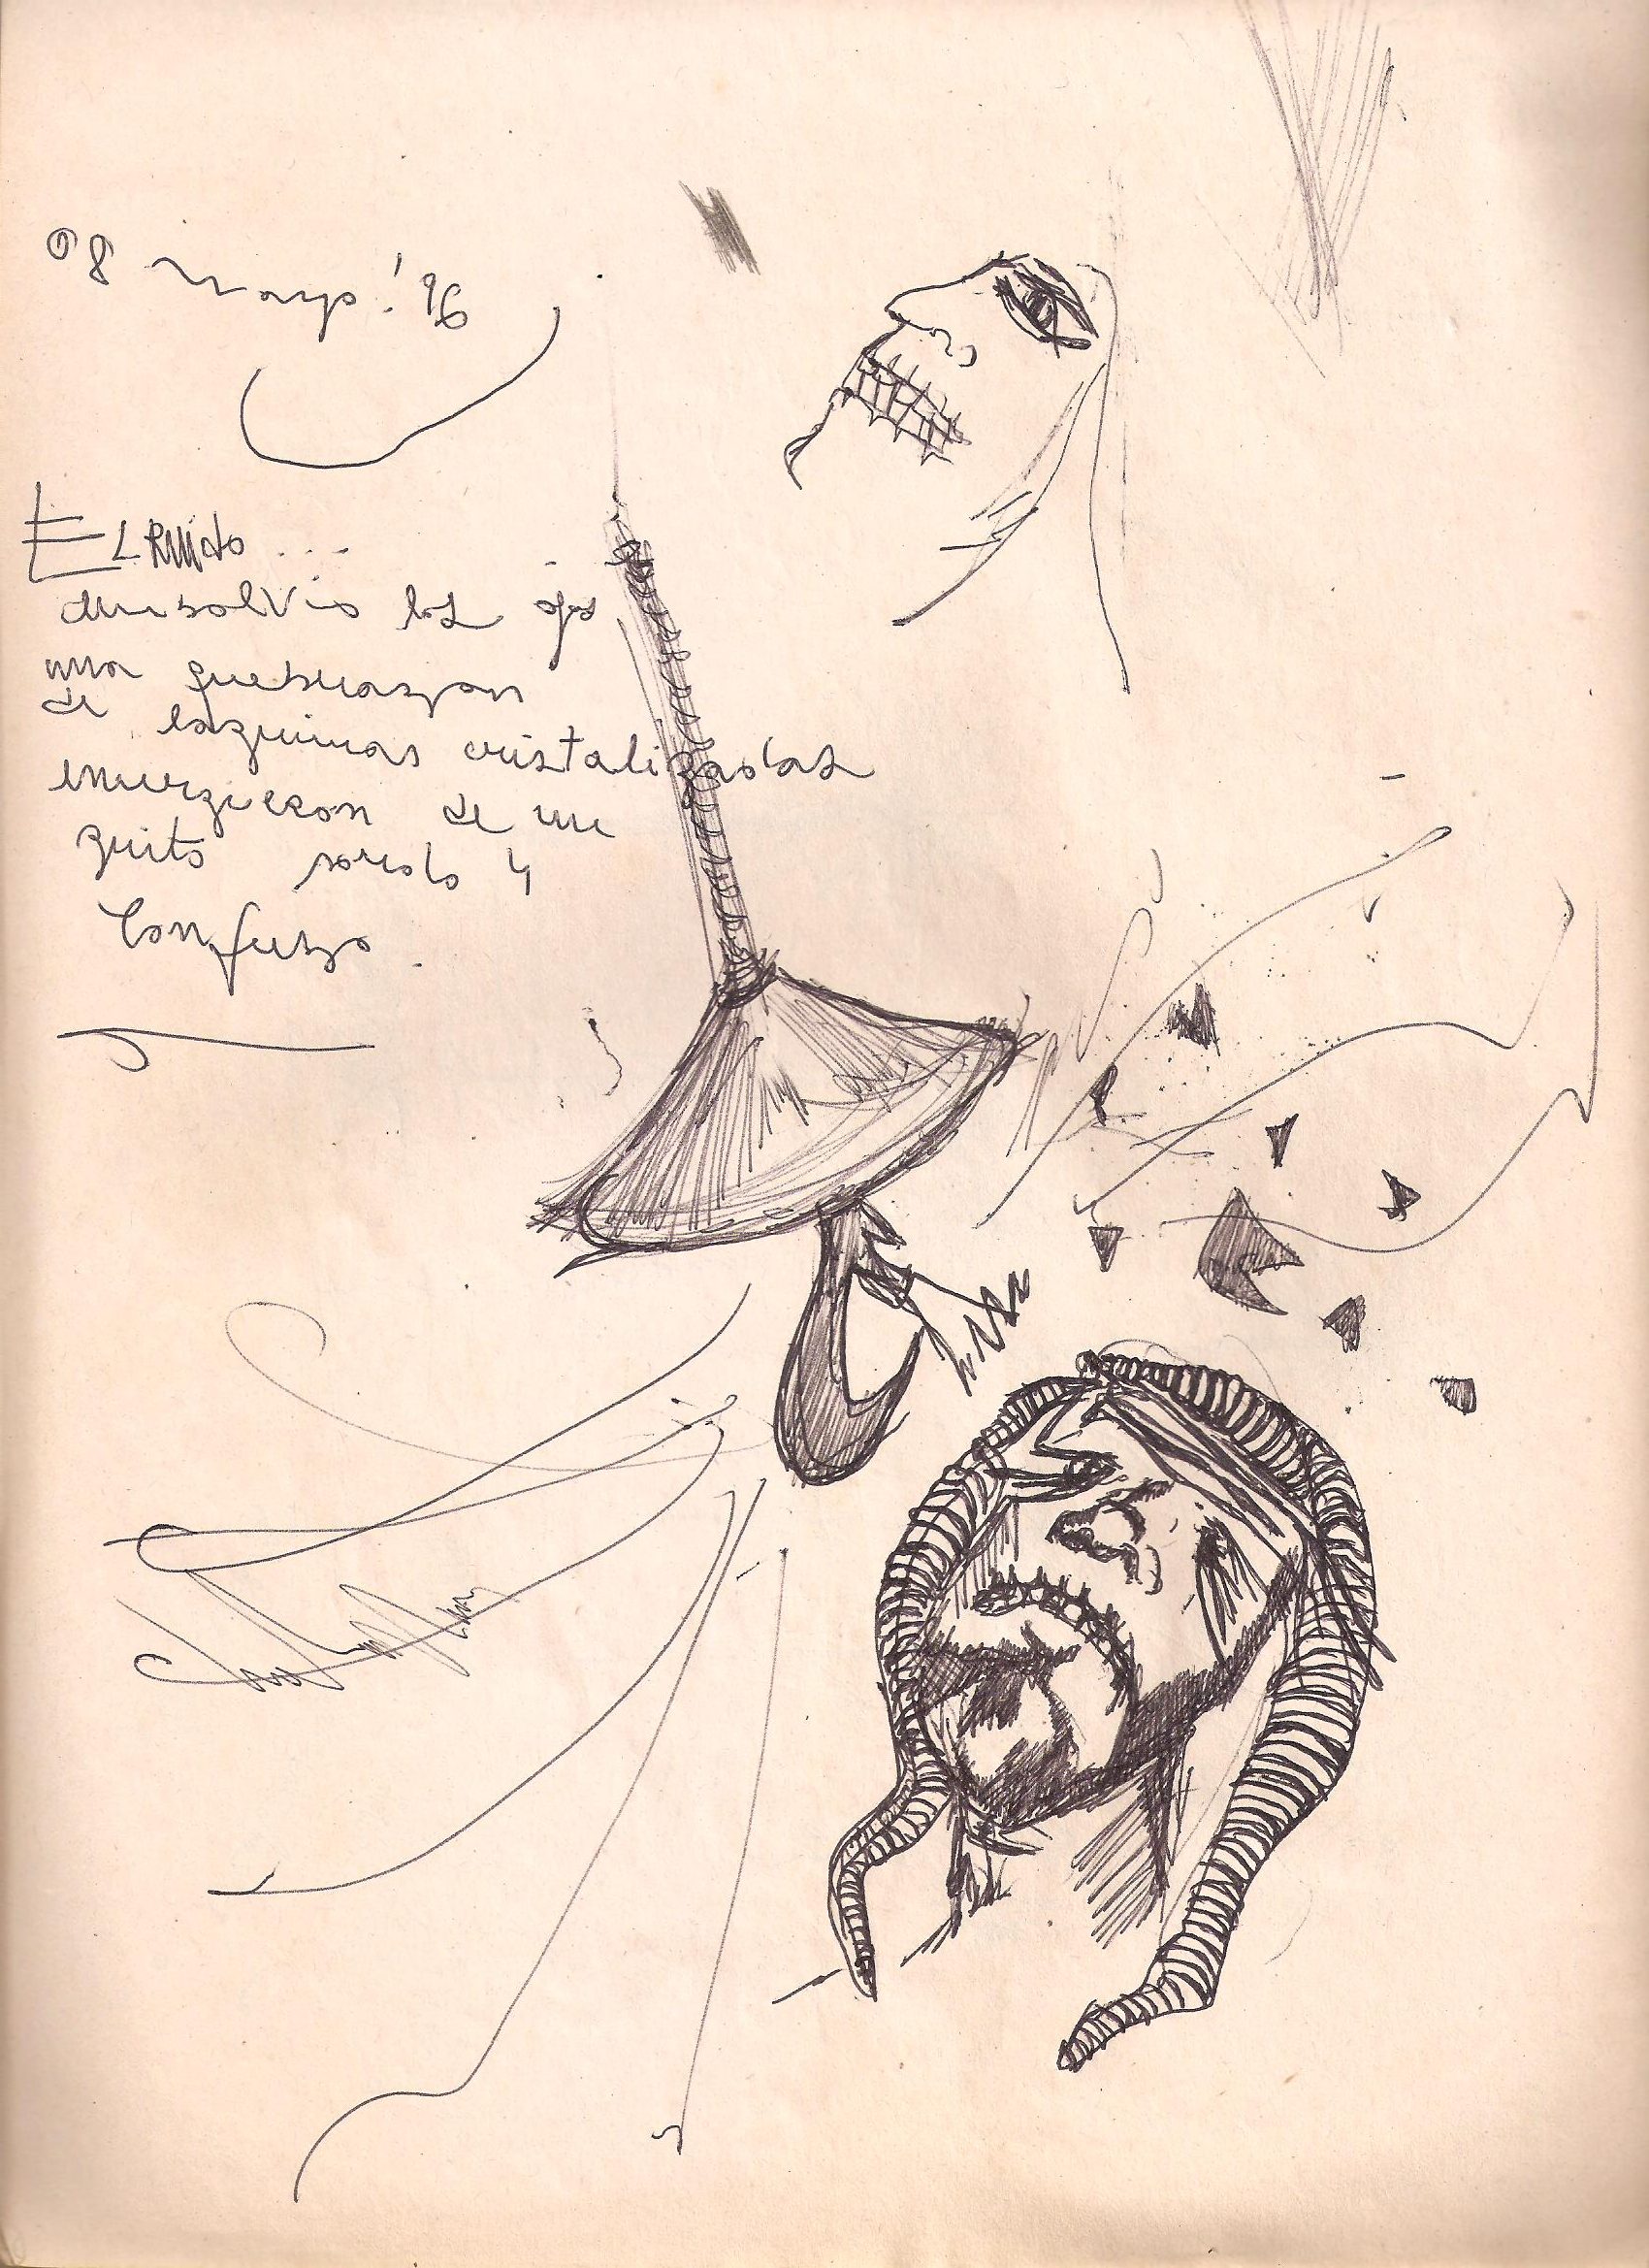 08 mayo '96
El Ruido ...
disolvio los ojos
una quebrazon
de lagrimas cristalizadas
emergieron de un
grito sordo y
Confuso.